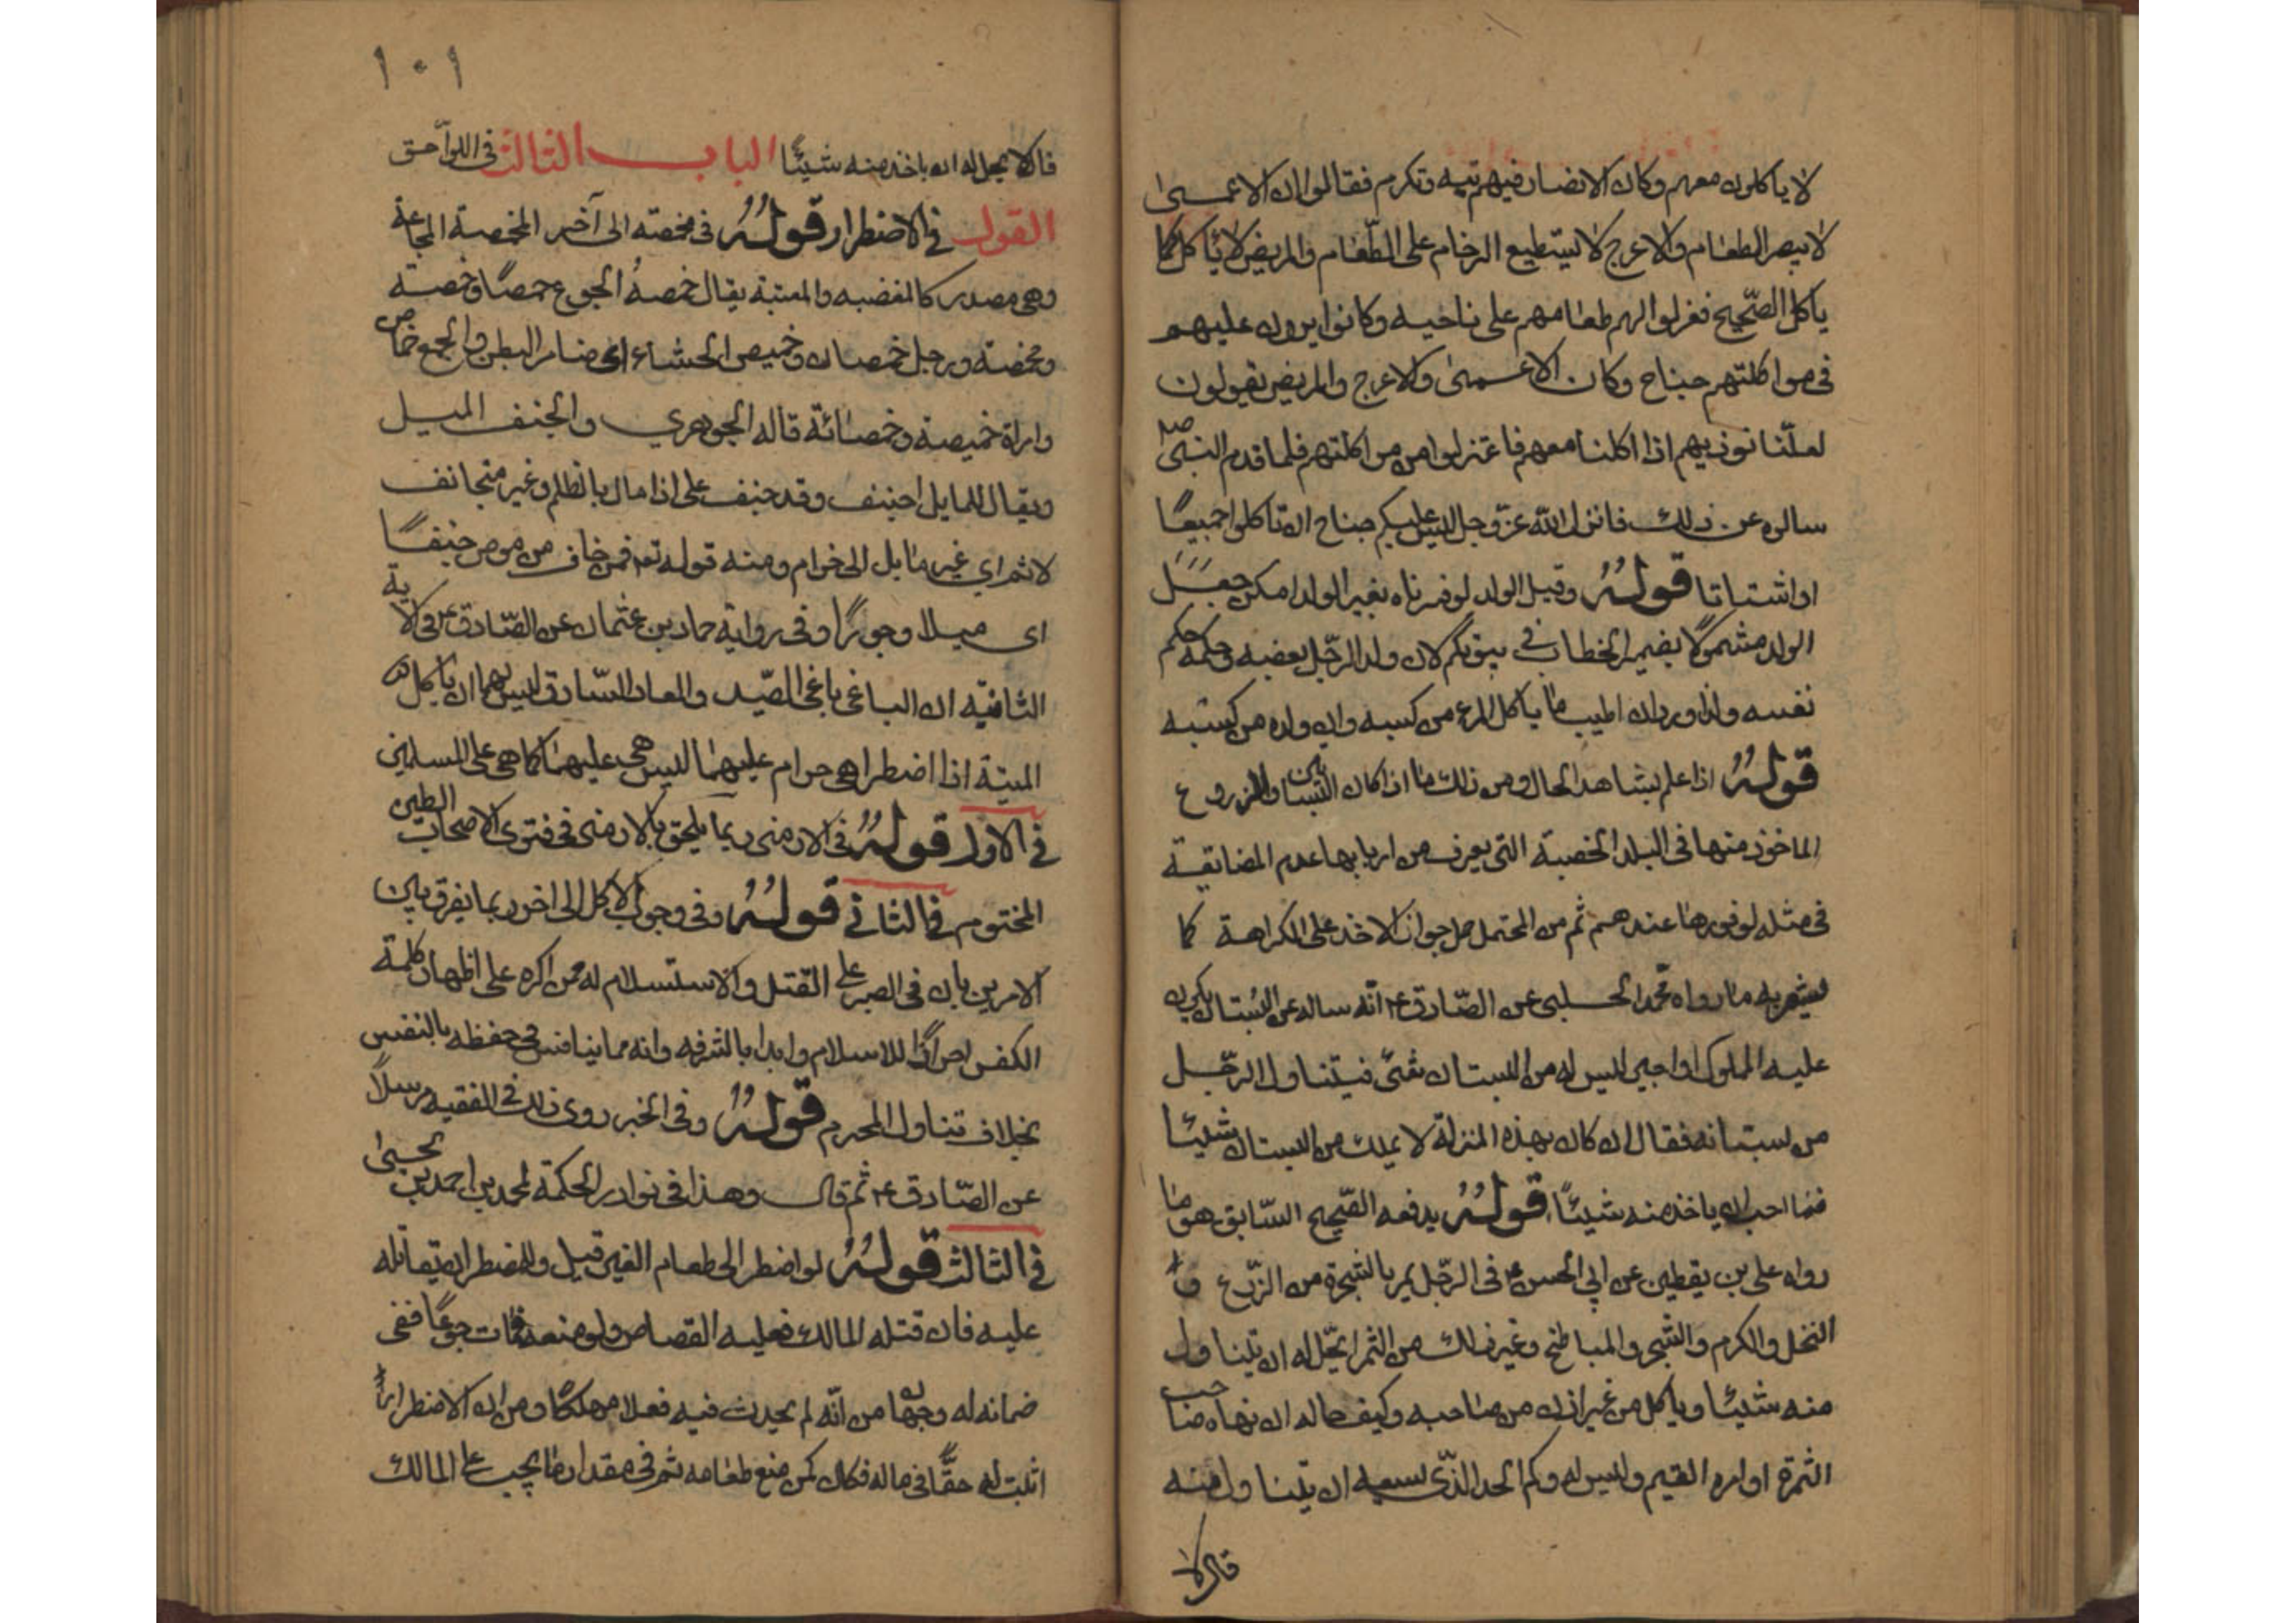 لا ياكلون معهم وكان الانصار فيهم تيه وتكرم فقالوا ان الاعمى
لا يبصر الطعام والاعرج لا يستطيع الزحام على الطعام والمريض لا ياكل كما
ياكل الصحيح فعزلوا لهم طعامهم على ناحيه وكانوا يرون عليهم
فى مواكلتهم جناح وكان الاعمى والاعرج والمريض يقولون
لعلنا نوذيهم اذا اكلنا معهم فاعتزلوا من مواكلتهم فلما قدم النبى ص
سالوه عن ذلك فانزل الله عز وجل ليس عليكم جناح ان تاكلوا جميعا
او اشتاتا قوله وقيل الولد لو فسرناه بغير الولد امكن جعل
الولد مشمولا بضمير الخطاب في بيوتكم لان ولد الرجل بعضه وحكمه حكم
نفسه ولذا ورد ان اطيب ما ياكل المرء من كسبه وان ولده من كسبه
قوله اذا علم بشاهد الحال ومن ذلك ما اذا كان البساتين والزروع
الماخوذ منها فى البلد الخصبة التى يعرف من اربابها عدم المضايقة
فى مثله لوفورها عندهم ثم من المحتمل حمل جواز الاخذ على الكراهة كما
يشعر به ما رواه محمد الحلبى عن الصادق ع انه ساله عن البستان يكون
عليه المملوك او اجير ليس له من البستان شئ فيتناول الرجل
من بستانه فقال ان كان بهذه المنزلة لا يملك من البستان شيئا
فما احب ان ياخذ منه شيئا قوله يدفعه الصحيح السابق هو ما
رواه على بن يقطين عن ابي الحسن ع فى الرجل يمر بالشجرة من الزرع و
النخل والكرم والشجر والمباطخ وغير ذلك من الثمر ايحل له ان يتناول
منه شيئا وياكل من غير اذن من صاحبه وكيف حاله ان نهاه صاحب
الثمرة او امره القيم وليس له وكم الحد الذى يسعه ان يتناول منه
قال لا
١٠١
قال لا يحل له ان ياخذ منه شيئا الباب الثالث فى اللواحق
القول في الاضطرار قوله فى مخمصة الى آخر المخمصة المجاعة
وهى مصدر كالمغضبه والمعتبة يقال خمصه الجوع خمصا وخمصة
ومخمصة ورجل خمصان وخميص الحشاء اى ضامر البطن والجمع خماص
وامراة خميصة وخمصانة قاله الجوهري والجنف الميل
ويقال للمايل اجنف وقد جنف على اذا مال بالظلم وغير متجانف
لاثم اي غير مايل الى حرام ومنه قوله تع فمن خاف من موص جنفا
اى ميلا وجورا وفى رواية حماد بن عثمان عن الصادق ع فى الاية
الثانيه ان الباغى باغى الصيد والعاد السارق ليس لهما ان ياكلا
الميتة اذا اضطرا هى حرام عليهما ليس هى عليهما كما هى على المسلمين
في الاول قوله فى الارمنى ربما يلحق بالارمنى فى فتوى الاصحاب الطين
المختوم في الثاني قوله وفى وجوب الاكل الى اخر ربما يفرق بين
الامرين بان فى الصبر على القتل والاستسلام له من اكره على اظهار كلمة
الكفر اعزازا للاسلام وايذا بالشرفه وانه مما ينافس في حفظه بالنفس
بخلاف تناول المحرم قوله وفى الخبر روى ذلك فى الفقيه مرسلا
عن الصادق ع ثم قال وهذا فى نوادر الحكمة لمحمد بن احمد بن يحيى
في الثالث قوله لو اضطر الى طعام الغير قيل وللمضطر ان يقاتله
عليه فان قتله المالك فعليه القصاص ولو منعه فمات جوعا ففى
ضمانه له وجهان من انه لم يحدث فيه فعلا مهلكا ومن ان الاضطرار
اثبت له حقا فى ماله فكان كمن منع طعامه ثم فى مقدار ما يجب على المالك